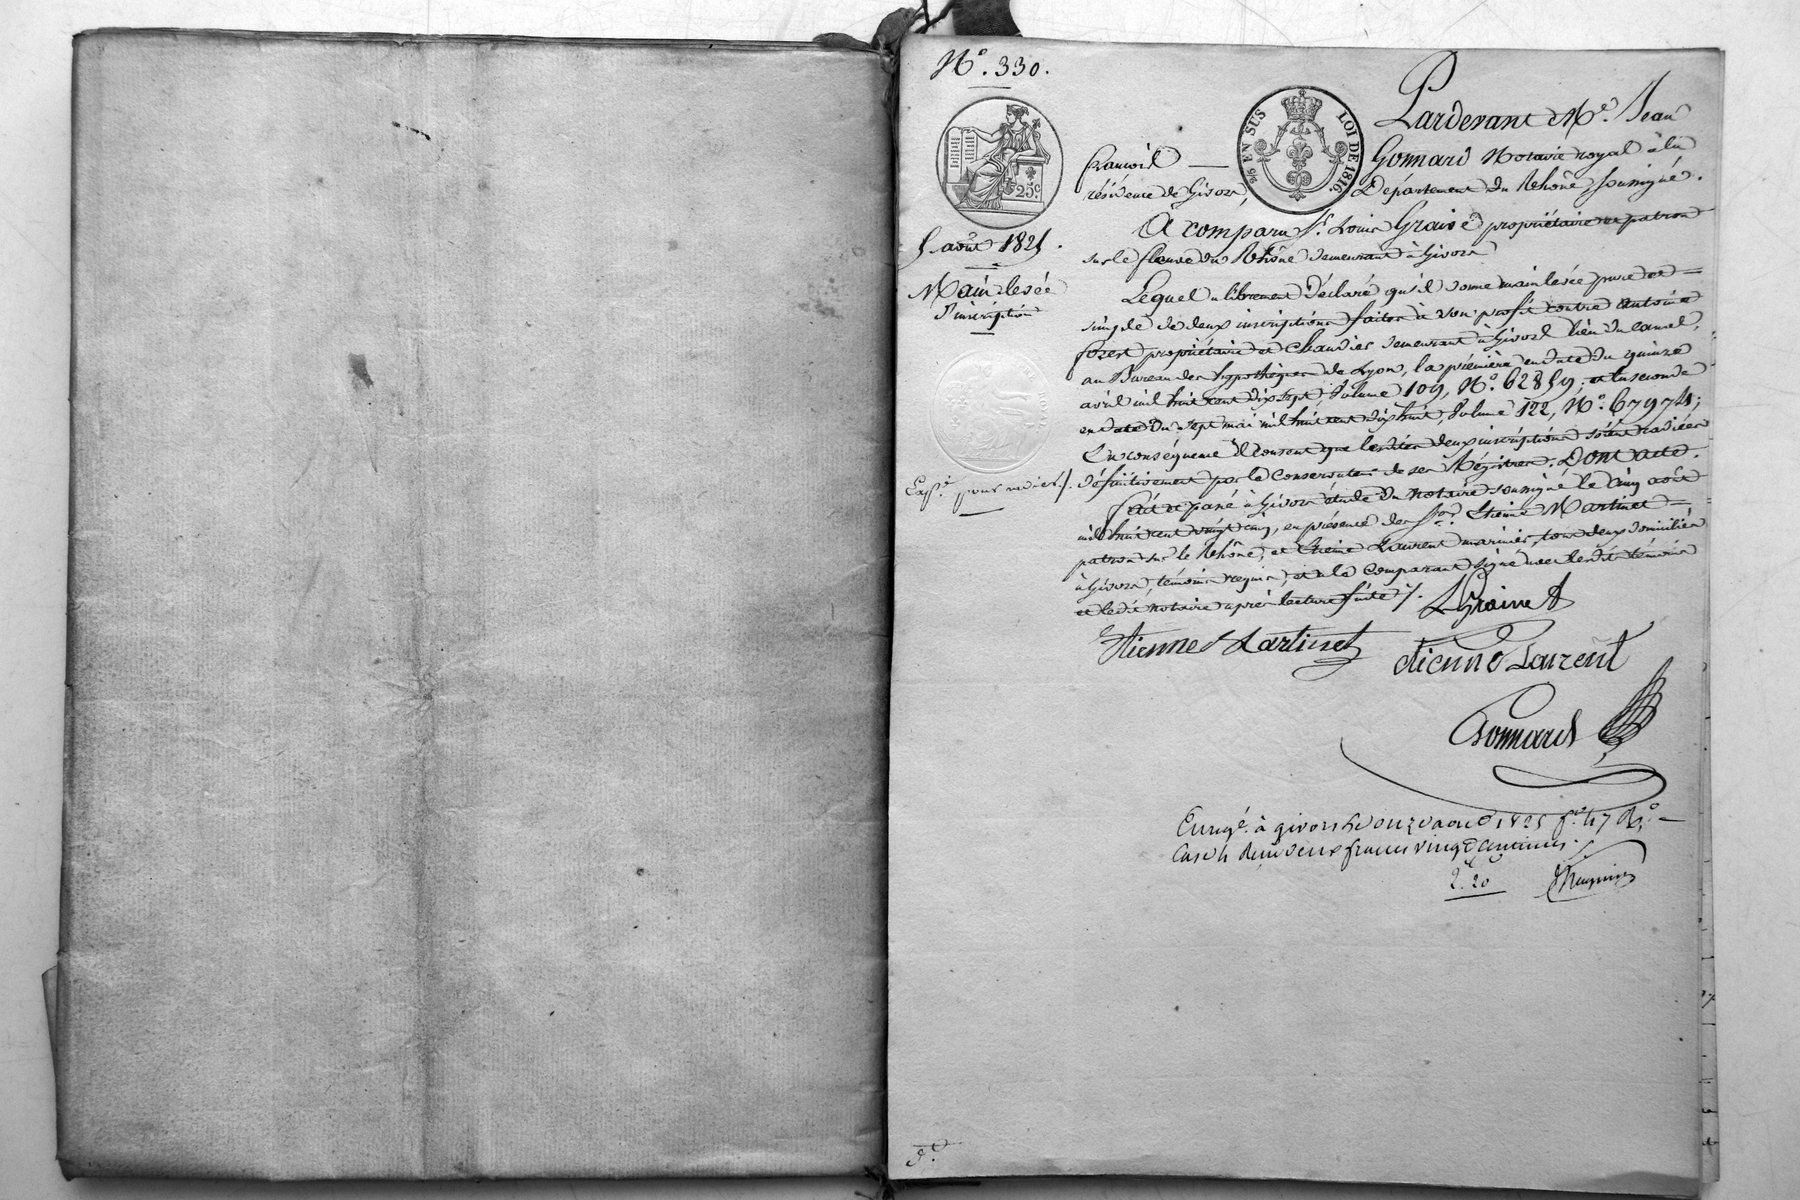 N.° 330.
25.c
EN SUS
LOI DE 1816.
5 août 1825.
Main levée
d'inscription
Exp.é pour radier /.
Pardevant M.e Jean
françois Gonnard Notaire royal à la
résidence de Givors, Département du Rhône, soussigné.
A comparu S.r Louis Graive propriétaire et patron
sur le fleuve du Rhône demeurant à Givors
Lequel a librement déclaré qu'il donne mainlevée pure et
simple de deux inscriptions faites à son profit contre Antoine
forest propriétaire et demeurant à Givors lieu du canal,
au Bureau des hypothèques de Lyon, la première en date du quinze
avril mil huit cent dix sept, Volume 109, N.° 62859; et la seconde
en date du sept mai mil huit cent dix huit, Volume 122, N.° 67974;
En conséquence il consent que lesdites deux inscriptions soient radiées
définitivement par le Conservateur de ses Régistres. Dont acte.
fait et passé à Givors étude du notaire soussigné le cinq août
mil huit cent vingt cinq, en présence des S.rs Etienne Martinet
patron sur le Rhône, et Etienne Laurent marinier, tous deux domiciliés
à Givors, témoins requis, et a le comparant signé avec lesdits témoins
et ledit notaire après lecture faite /.
Etienne Martinet
etienne Laurent
Gonnard
Enregé. à givors le onze aout 1825 f.° 47 R.°
Case 4 Reçu deux francs vingt centimes.
2.20